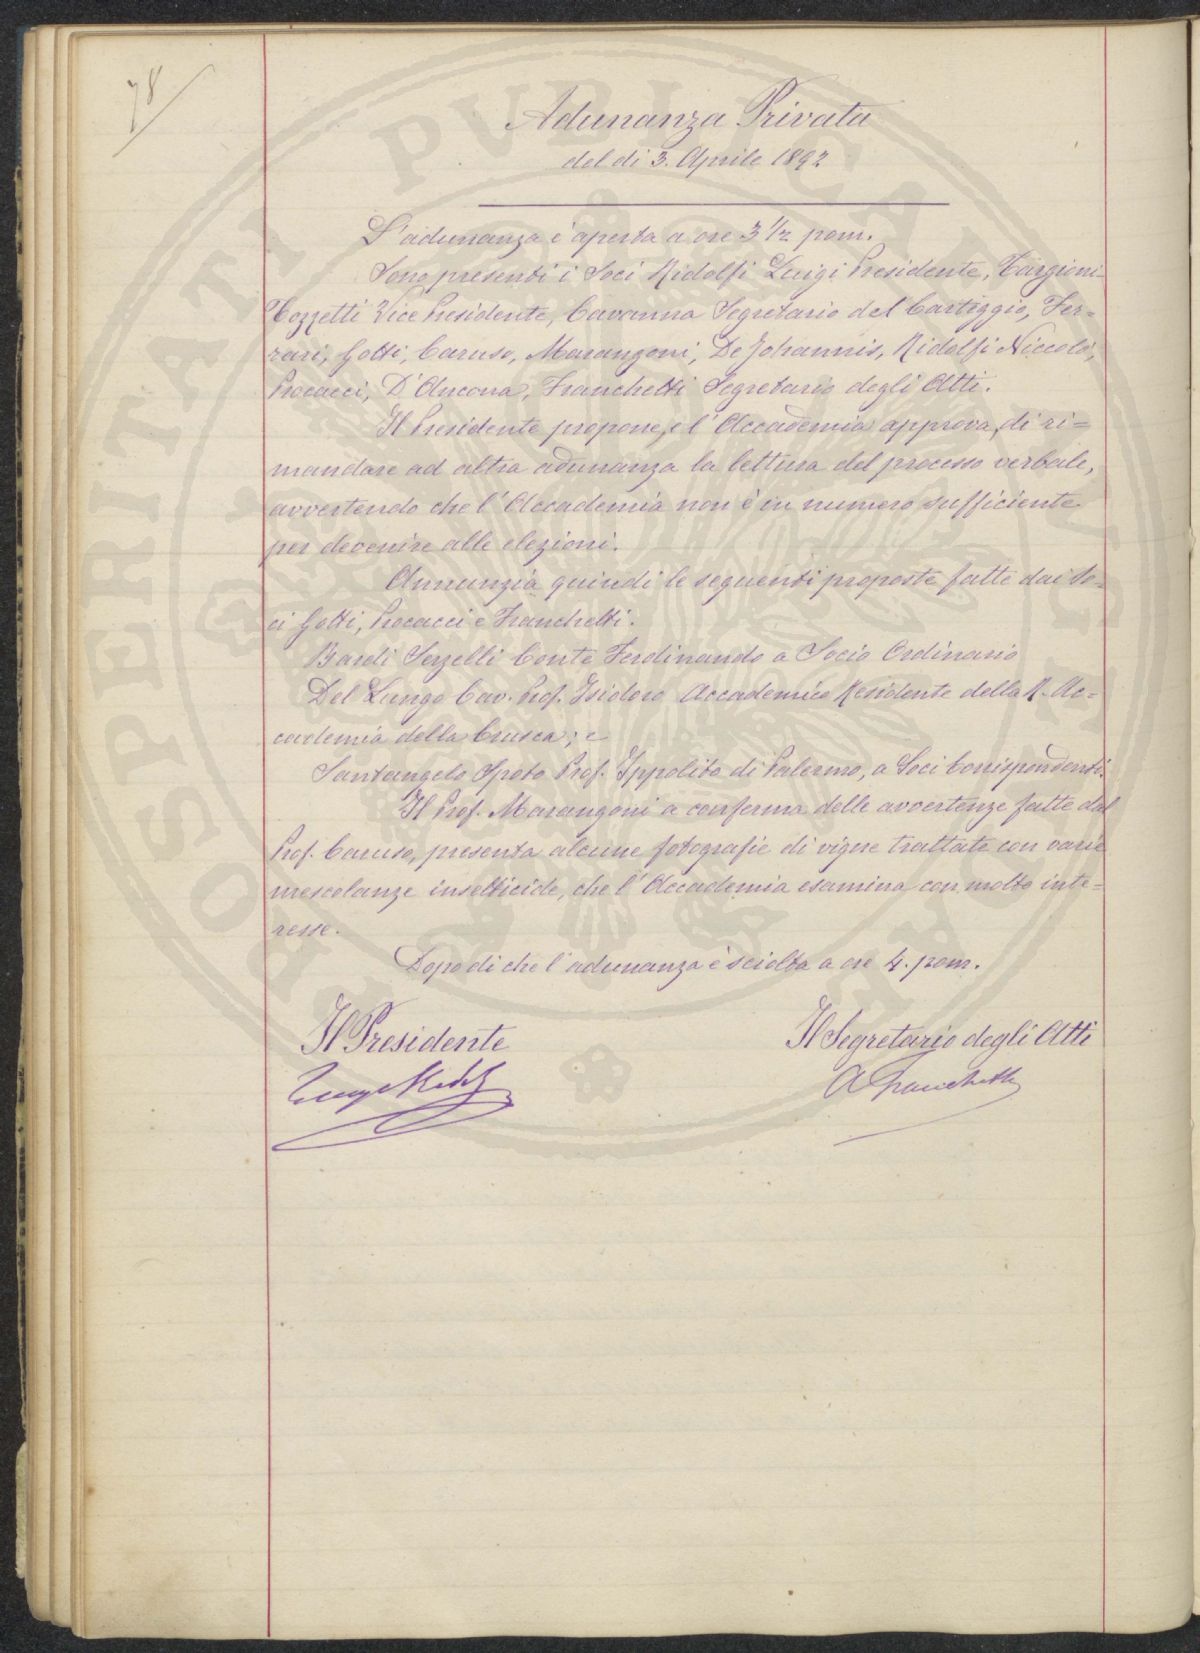 78
Adunanza Privata
del dì 3. Aprile 1892
L'adunanza è aperta a ore 3 1/2 pom.
Sono presenti i Soci Ridolfi Luigi Presidente, Targioni
Tozzetti Vice Presidente, Cavanna Segretario del Carteggio, Fer=
rari, Gotti, Caruso, Marangoni, De Johannis, Ridolfi Niccolò,
Procacci, D'Ancona, Franchetti Segretario degli Atti.
Il Presidente propone, e l'Accademia approva, di ri=
mandare ad altra adunanza la lettura del processo verbale,
avvertendo che l'Accademia non è in numero sufficiente
per devenire alle elezioni.
Annunzia quindi le seguenti proposte fatte dai So=
ci Gotti, Procacci e Franchetti.
Bardi Serzelli Conte Ferdinando a Socio Ordinario
Del Lungo Cav. Prof. Isidoro Accademico Residente della R. Ac=
cademia della Crusca; e
Santangelo Spoto Prof. Ippolito di Palermo, a Soci Corrispondenti.
Il Prof. Marangoni a conferma delle avvertenze fatte dal
Prof. Caruso, presenta alcune fotografie di vigne trattate con varie
mescolanze insetticide, che l'Accademia esamina con molto inte=
resse.
Dopo di che l'adunanza è sciolta a ore 4. pom.
Il Presidente
Il Segretario degli Atti
Luigi Ridolfi
A Franchetti
PROSPERITATI PVBLICAE AVGENDAE